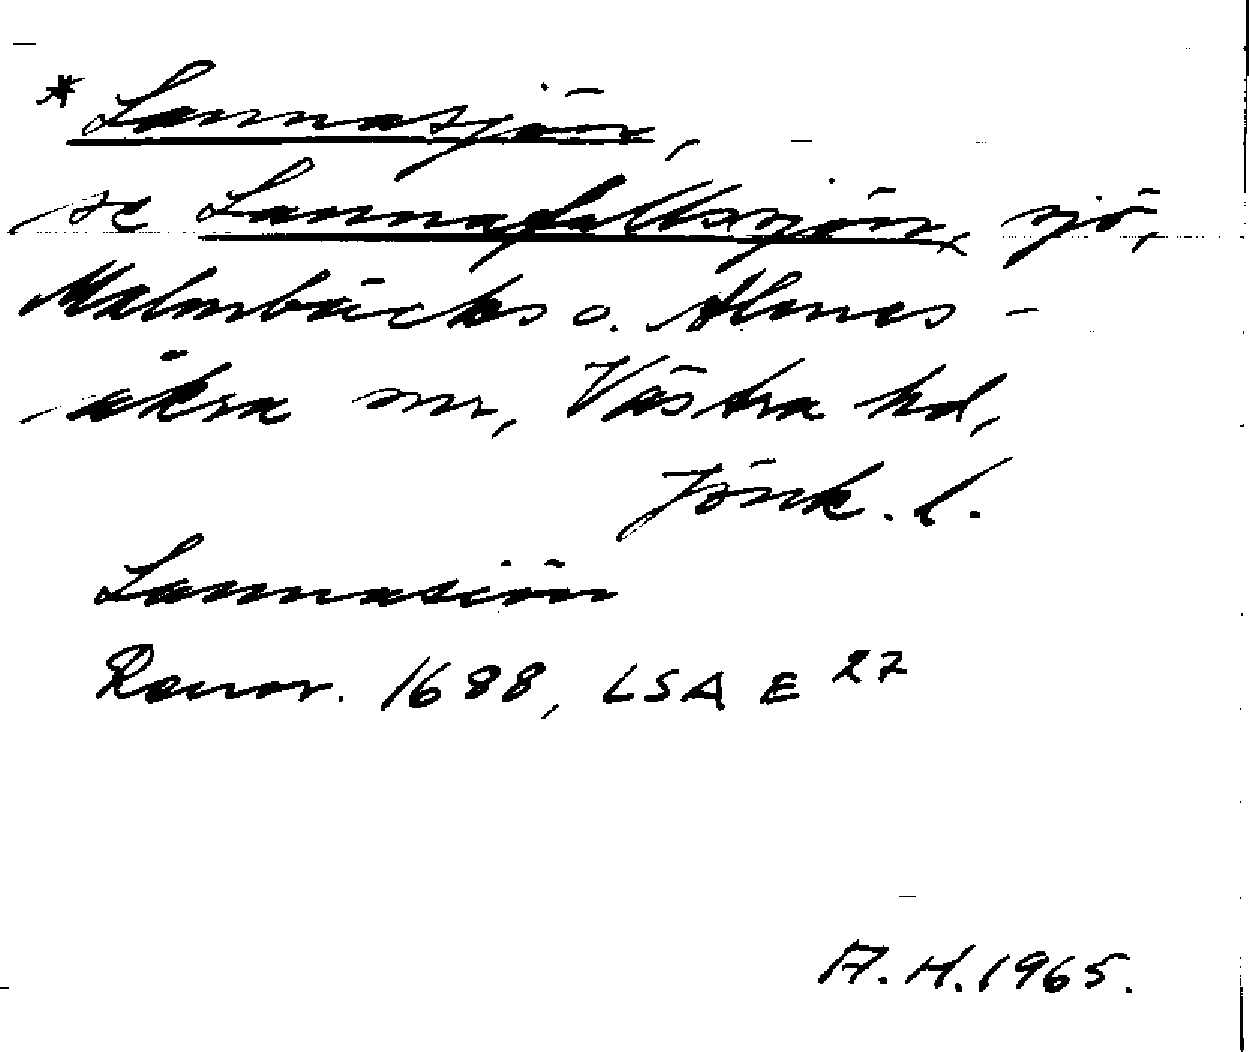 * Lannasjön,
se Lannafallssjön, sjö,
Malmbäcks o. Almes-
åkra snr, Västra hd,
Jönk. l.
Lannasiön
Renov. 1688, LSA E 27
A.H. 1965.